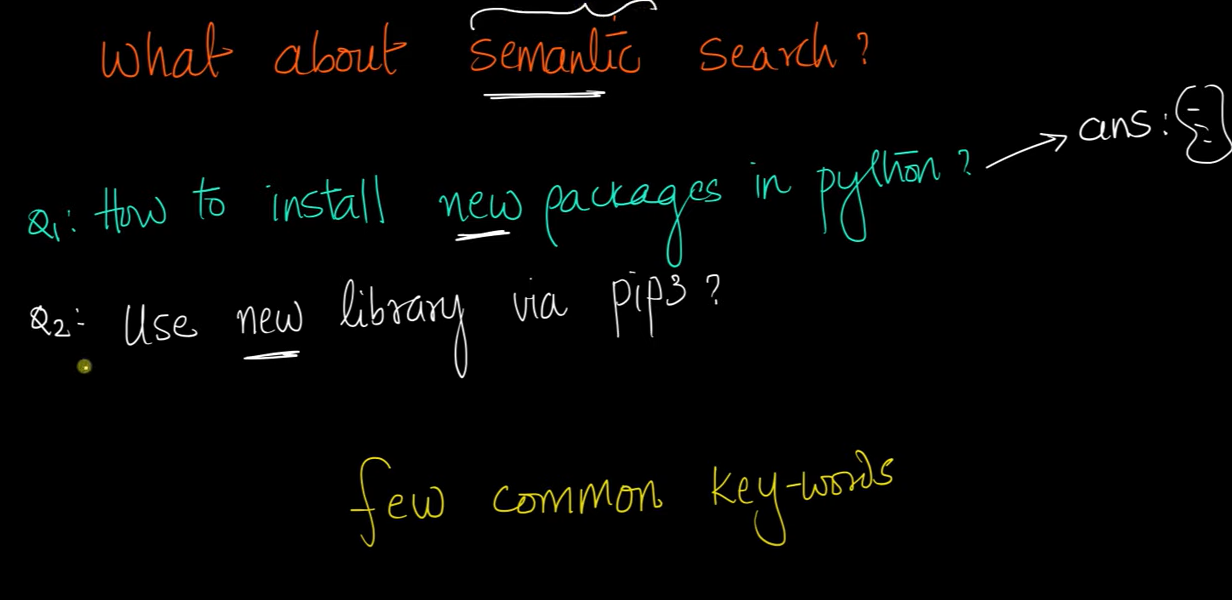 What about semantic search?
ans: {
Q1: How to install new packages in python?
Q2: Use new library via pip3?
few common key-words